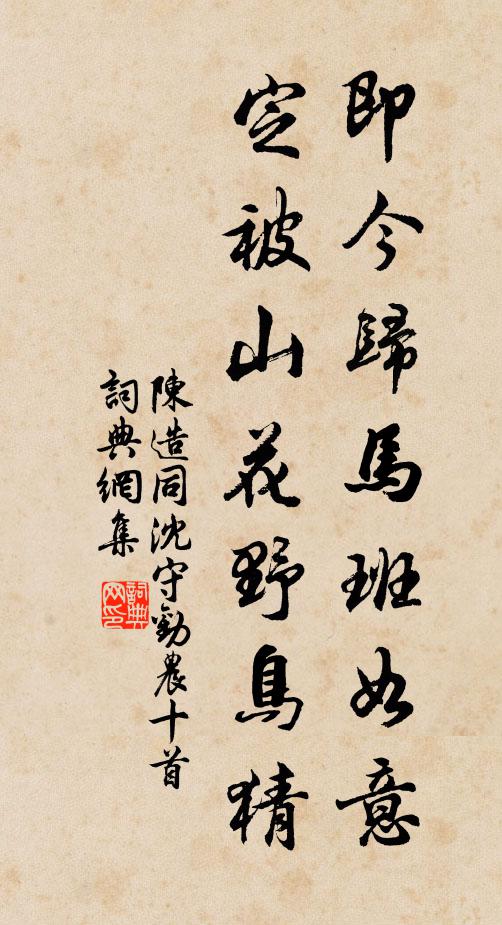 即今歸馬班如意
定被山花野鳥猜
陳造同沈守勸農十首
詞典網集
詞典
网印